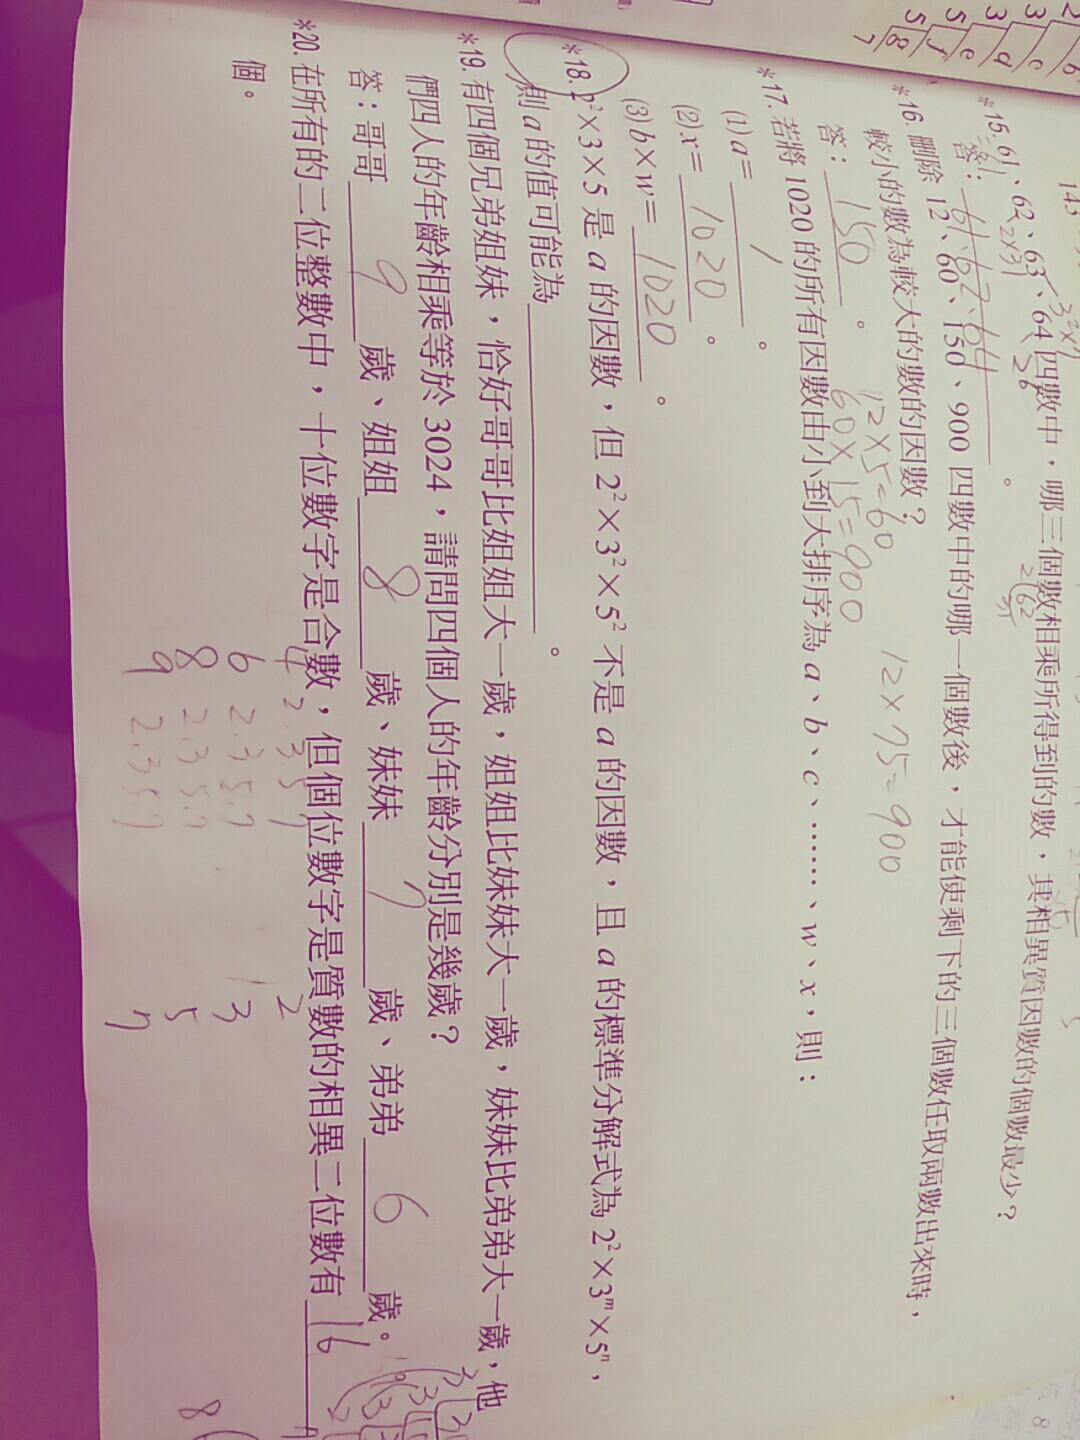 *15. 61、62、63、64 四數中，哪三個數相乘所得到的數，其相異質因數的個數最少？
答：61、62、64。
*16. 刪除 12、60、150、900 四數中的哪一個數後，才能使剩下的三個數任取兩數出來時，
較小的數為較大的數的因數？
12×5=60
12×75=900
答：150。
60×15=900
*17. 若將 1020 的所有因數由小到大排序為 a、b、c、……、w、x，則：
(1) a= 1 。
(2) x= 1020 。
(3) b×w= 1020 。
*18. 2²×3×5 是 a 的因數，但 2²×3²×5² 不是 a 的因數，且 a 的標準分解式為 2²×3ᵐ×5ⁿ，
則 a 的值可能為 。
*19. 有四個兄弟姐妹，恰好哥哥比姐姐大一歲，姐姐比妹妹大一歲，妹妹比弟弟大一歲，他
們四人的年齡相乘等於 3024，請問四個人的年齡分別是幾歲？
答：哥哥 9 歲、姐姐 8 歲、妹妹 7 歲、弟弟 6 歲。
*20. 在所有的二位整數中，十位數字是合數，但個位數字是質數的相異二位數有 16
個。
4 2.3.5.7
6 2.3.5.7
8 2.3.5.7
9 2.3.5.7
2
3
5
7